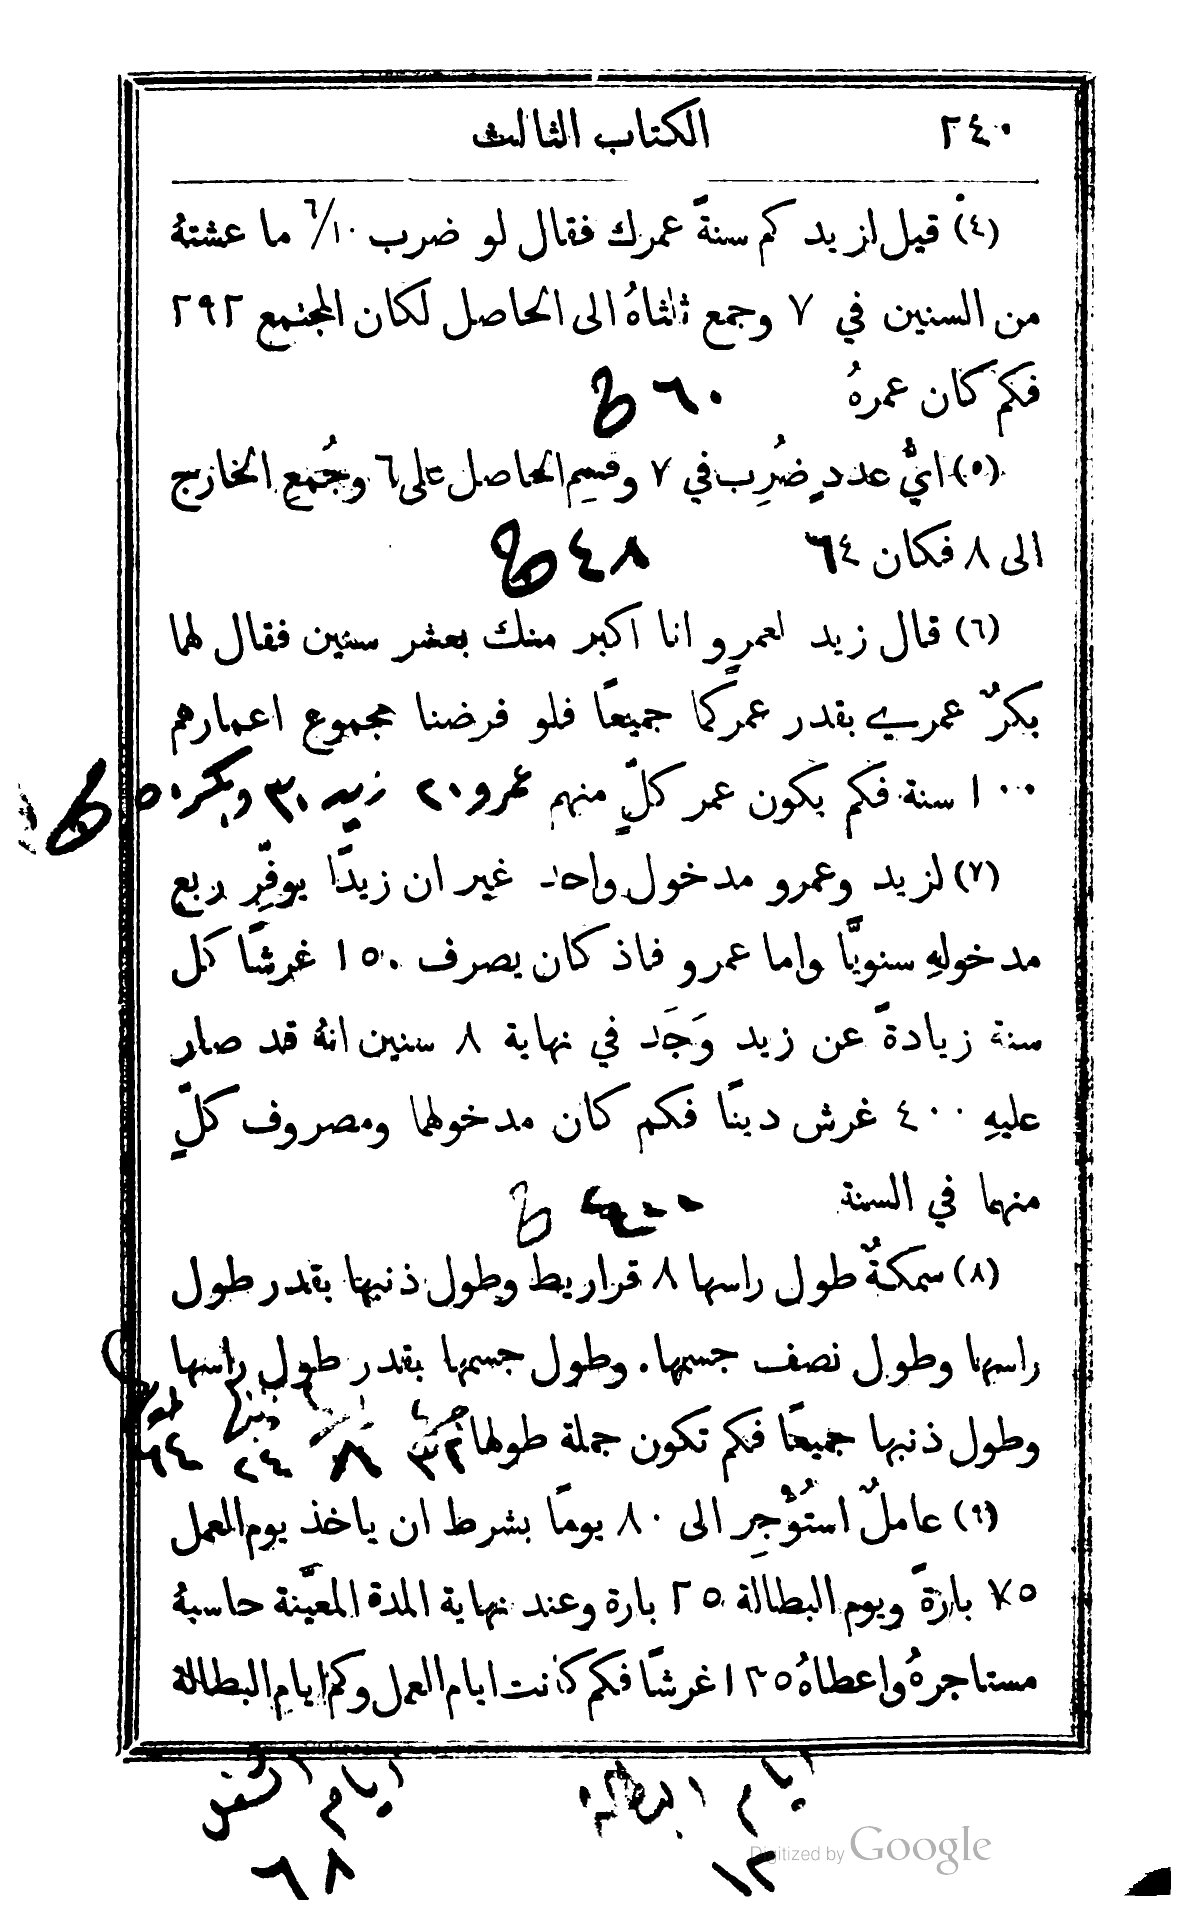 ٢٤٠ الكتاب الثالث
(٤) قيل لزيد كم سنةً عمرك فقال لو ضرب ٦/١٠ ما عشتهُ
من السنين في ٧ وجمع ثلثاهُ الى الحاصل لكان المجتمع ٢٩٢
فكم كان عمرهُ ٦٠
(٥) ايُّ عددٍ ضُرِب في ٧ وقسِم الحاصل على ٦ وجُمع الخارج
الى ٨ فكان ٦٤ ٤٨
(٦) قال زيد لعمرٍو انا اكبر منك بعشر سنين فقال لهما
بكرٌ عمري بقدر عمركما جميعًا فلو فرضنا مجموع اعمارهم
١٠٠ سنة فكم يكون عمر كلٍّ منهم عمرو ٢٠ زيد ٣٠ وبكر ٥٠
(٧) لزيد وعمرو مدخول واحد غير ان زيدًا يوفِّر ربع
مدخولهِ سنويًّا واما عمرو فاذ كان يصرف ١٥٠ غرشًا كل
سنة زيادةً عن زيد وَجَد في نهاية ٨ سنين انهُ قد صار
عليهِ ٤٠٠ غرش دينًا فكم كان مدخولهما ومصروف كلٍّ
منهما في السنة ٤٠٠
(٨) سمكةٌ طول راسها ٨ قراريط وطول ذنبها بقدر طول
راسها وطول نصف جسمها. وطول جسمها بقدر طول راسها
وطول ذنبها جميعًا فكم تكون جملة طولها جسمها ٣٢ ٨ ذنبها ٢٤ طولها ٦٤
(٩) عاملٌ استُؤْجِر الى ٨٠ يومًا بشرط ان ياخذ يوم العمل
٧٥ بارةً ويوم البطالة ٢٥ بارة وعند نهاية المدة المعيَّنة حاسبهُ
مستاجرهُ واعطاهُ ١٣٥ غرشًا فكم كانت ايام العمل وكم ايام البطالة
ايام البطالة ايام الشغل
١٢ ٦٨
Digitized by Google